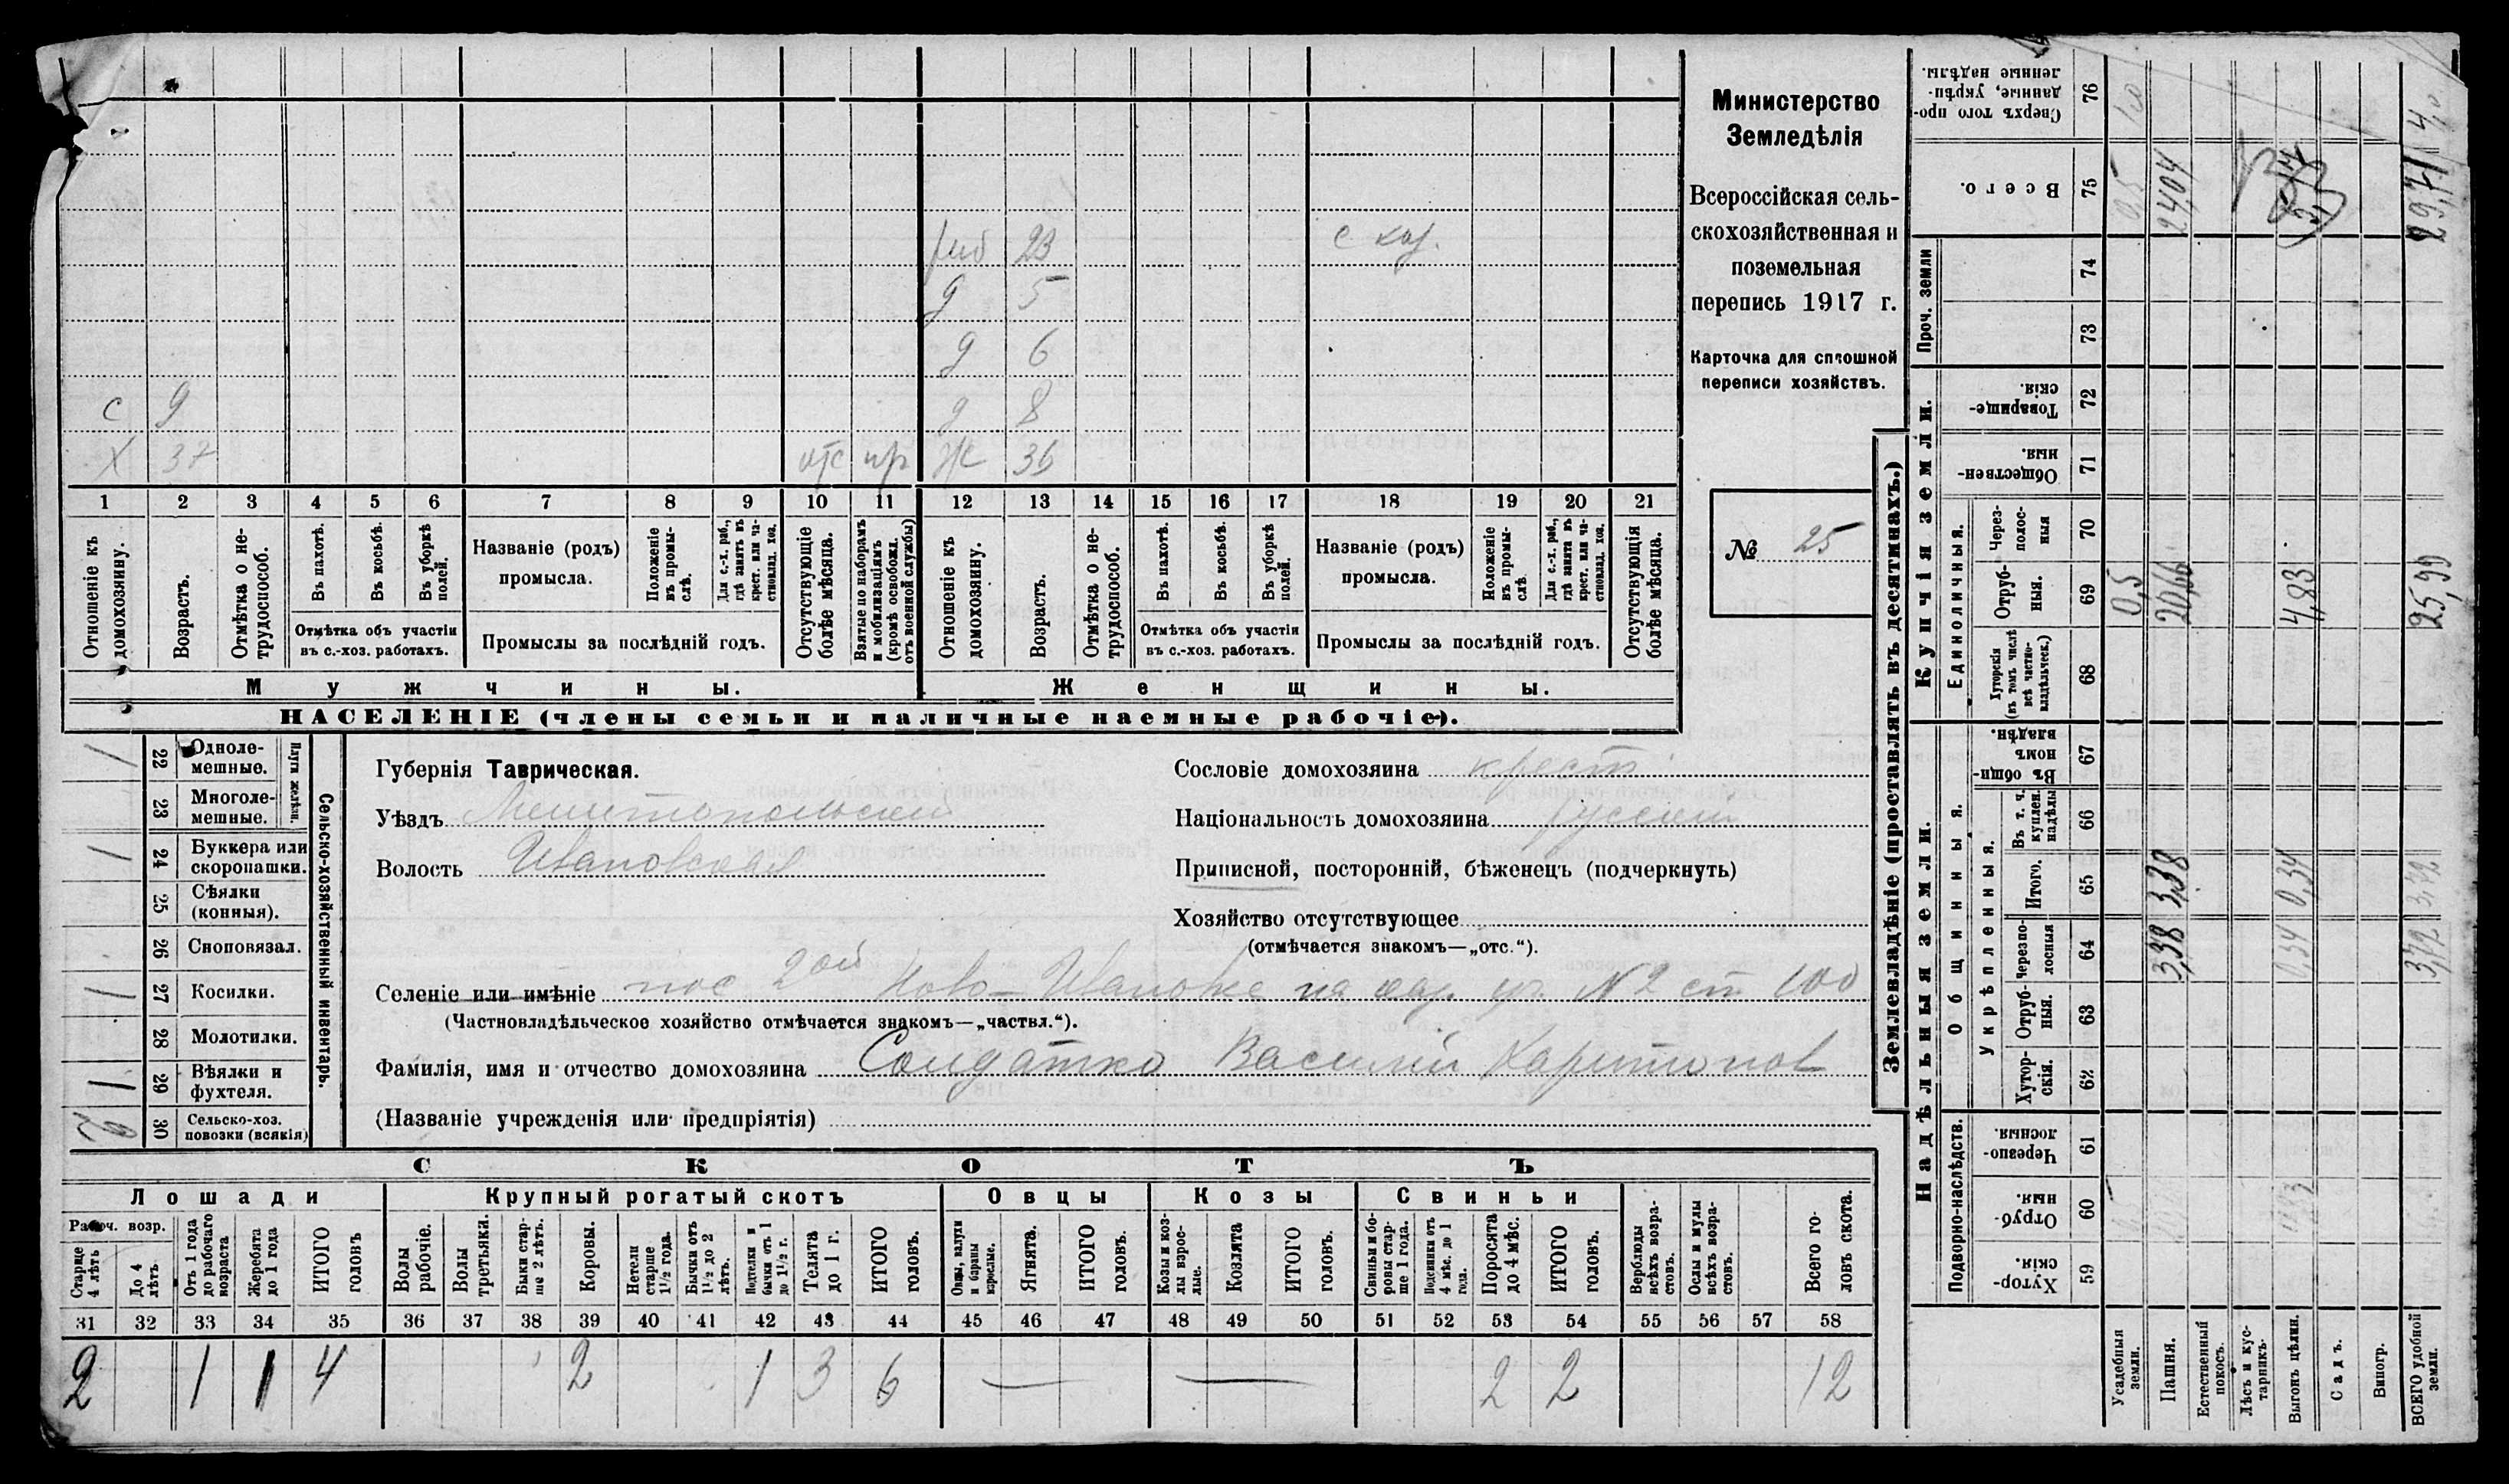 раб 23 с хоз.
д 5
д 6
с 9 д 8
Х 37 отс Ж 36
1 2 3 4 5 6 7 8 9 10 11 12 13 14 15 16 17 18 19 20 21
Отношеніе къ домохозяину.
Возрастъ.
Отмѣтка о не-трудоспособ.
Въ пахотѣ.
Въ косьбѣ.
Въ уборкѣ полей.
Отмѣтка объ участіи
въ с.-хоз. работахъ.
Названіе (родъ)
промысла.
Положеніе въ промы-слѣ.
Для с.-х. раб., гдѣ занятъ въ крест. или ча-стновлад. хоз.
Промыслы за послѣдній годъ.
Отсутствующіе болѣе мѣсяца.
Взятые по наборамъ и мобилизаціямъ (кромѣ освобожд. отъ военной службы)
Отношеніе къ домохозяину.
Возрастъ.
Отмѣтка о не-трудоспособ.
Въ пахотѣ.
Въ косьбѣ.
Въ уборкѣ полей.
Отмѣтка объ участіи
въ с.-хоз. работахъ.
Названіе (родъ)
промысла.
Положеніе въ промы-слѣ.
Для с.-х. раб., гдѣ занята въ крест. или ча-стновлад. хоз.
Промыслы за послѣдній годъ.
Отсутствующія болѣе мѣсяца.
Мужчины. Женщины.
НАСЕЛЕНІЕ (члены семьи и наличные наемные рабочіе).
Министерство
Земледѣлія
Всероссійская сель-
скохозяйственная и
поземельная
перепись 1917 г.
Карточка для сплошной
переписи хозяйствъ.
№ 25
Сельско-хозяйственный инвентарь.
Плуги желѣзн.
1 22 Однолемешные.
23 Многолемешные.
1 24 Буккера или скоропашки.
25 Сѣялки (конныя).
26 Сноповязал.
1 27 Косилки.
28 Молотилки.
1 29 Вѣялки и фухтеля.
30 Сельско-хоз. повозки (всякія)
Губернія Таврическая.
Уѣздъ Мелитопольский
Волость Ивановская
Сословіе домохозяина крест
Національность домохозяина русский
Приписной, посторонній, бѣженецъ (подчеркнуть)
Хозяйство отсутствующее
(отмѣчается знакомъ—„отс.“).
Селеніе или имѣніе пос 2ой Ново-Ивановке на уч. №2 ст 100
(Частновладѣльческое хозяйство отмѣчается знакомъ—„частвл.“).
Фамилія, имя и отчество домохозяина Солдатко Василий Харитонов
(Названіе учрежденія или предпріятія)
СКОТЪ
Лошади Крупный рогатый скотъ Овцы Козы Свиньи
Рабоч. возр.
Старше 4 лѣтъ
До 4 лѣтъ.
Отъ 1 года до рабочаго возраста
Жеребята до 1 года
ИТОГО головъ
Волы рабочіе.
Волы третьяки.
Быки стар-ше 2 лѣтъ.
Коровы.
Нетели старше 1½ года.
Бычки отъ 1½ до 2 лѣтъ.
Подтелки и бычки отъ 1 до 1½ г.
Телята до 1 г.
ИТОГО головъ.
Овцы, валухи и бараны взрослые.
Ягнята.
ИТОГО головъ.
Козы и коз-лы взрос-лые.
Козлята
ИТОГО головъ.
Свиньи и бо-ровы стар-ше 1 года.
Подсвинки отъ 4 мѣс. до 1 года.
Поросята до 4 мѣс.
ИТОГО головъ.
Верблюды всѣхъ возра-стовъ.
Ослы и мулы всѣхъ возра-стовъ.
Всего го-ловъ скота.
31 32 33 34 35 36 37 38 39 40 41 42 43 44 45 46 47 48 49 50 51 52 53 54 55 56 57 58
2 1 1 4 2 1 3 6 — — 2 2 12
Землевладѣніе (проставлять въ десятинахъ.)
Надѣльныя земли. Купчія земли. Проч. земли
Подворно-наслѣдств. Общинныя. Укрѣпленныя. Единоличныя.
59 Хутор-скія.
60 Отруб-ныя.
61 Черезпо-лосныя.
62 Хутор-скія.
63 Отруб-ныя.
64 Черезпо-лосныя
65 Итого.
66 Въ т. ч. куплен. надѣлы
67 Въ общин-номъ владѣн.
68 Хуторскія (въ томъ числѣ всѣ частно-владѣльческ.)
69 Отруб-ныя.
70 Через-полос-ныя
71 Обществен-ныя.
72 Товарище-скія.
73
74
75 Всего.
76 Сверхъ того про-данные, укрѣп-ленные надѣлы.
Усадебныя земли. 0,5 0,5
Пашня. 3,38 3,38 20,66 24,04
Естественный покосъ.
Лѣсъ и кус-тарникъ.
Выгонъ цѣлин. 0,34 0,34 4,83
Садъ.
Виногр.
ВСЕГО удобной земли. 3,72 3,72 25,99 29,71